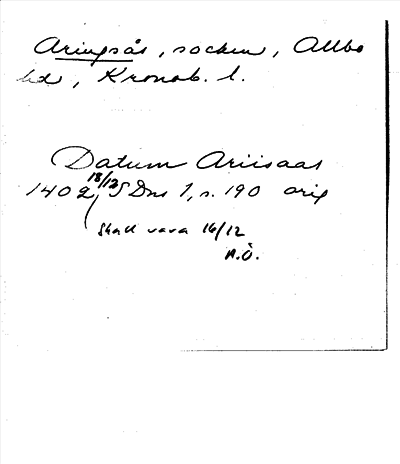 Aringsås, socken, Allbo
hd, Kronob. l.
Datum Ariisaas
1402 18/12 SDns 1, s. 190 orig
Skall vara 16/12
N.Ö.